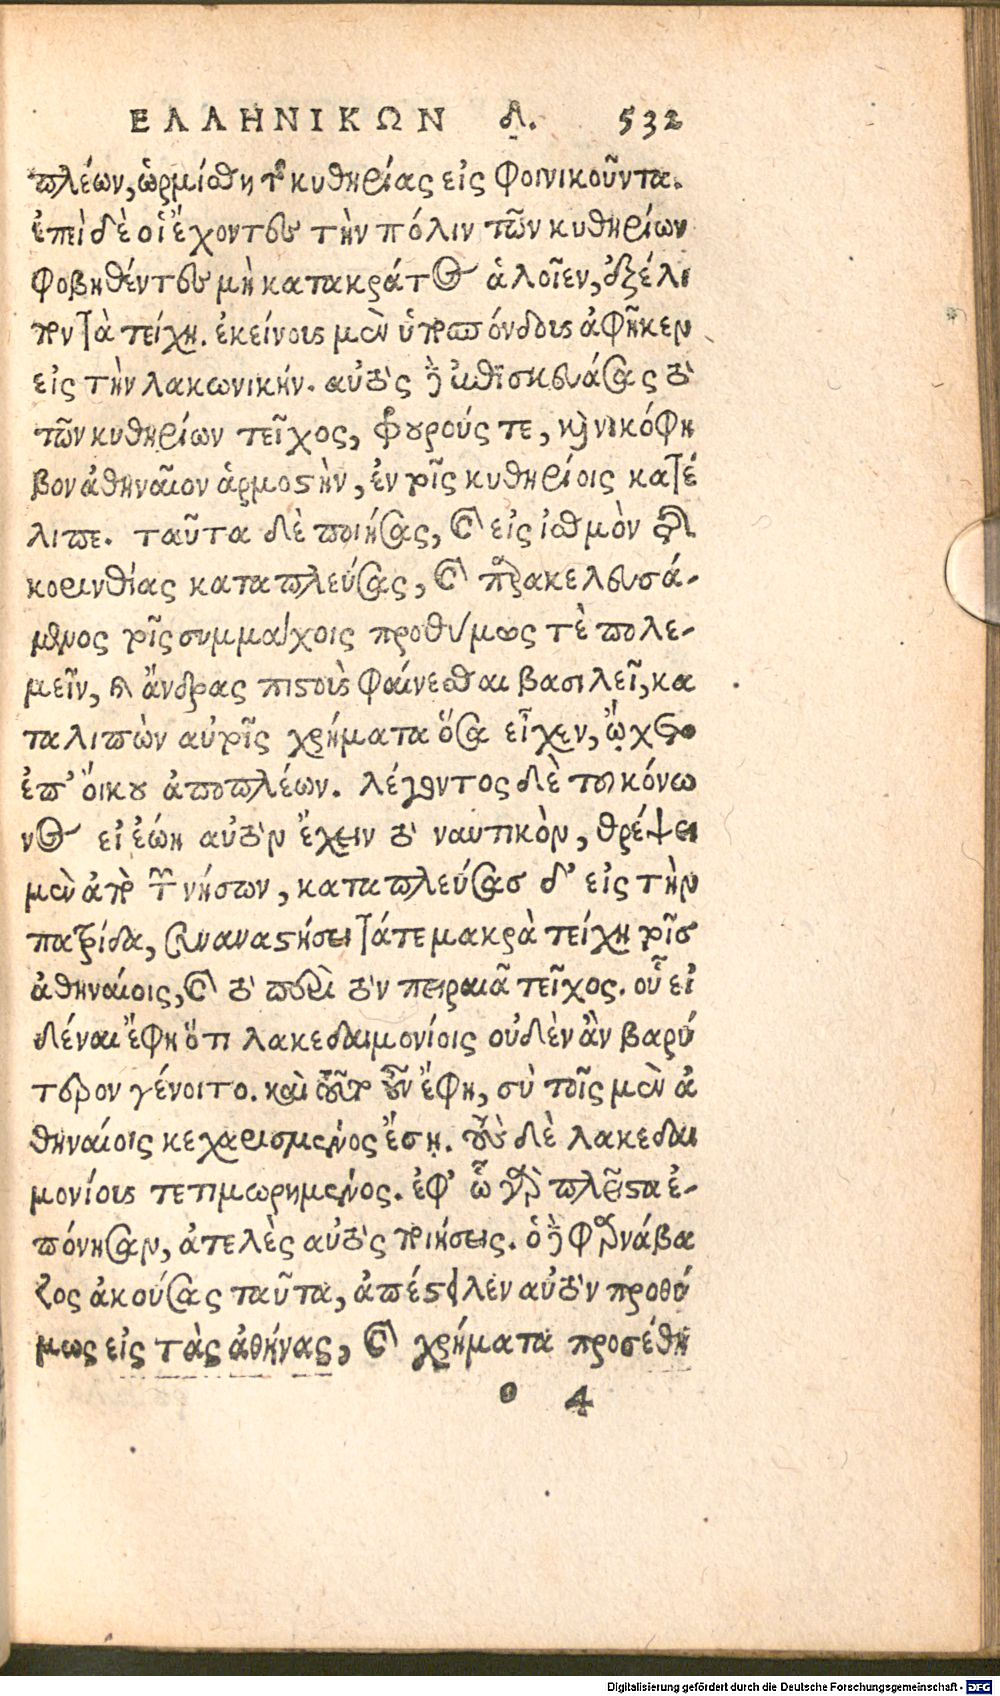 ΕΛΛΗΝΙΚΩΝ Δ. 532
πλέων, ὡρμίσθη τῆς κυθηρίας εἰς Φοινικοῦντα.
ἐπεὶ δὲ οἱ ἔχοντες τὴν πόλιν τῶν κυθηρίων
φοβηθέντες μὴ κατακράτος ἁλοῖεν, ἐξέλι
πον τὰ τείχη. ἐκείνους μὲν ὑποσπόνδους ἀφῆκεν
εἰς τὴν λακωνικήν. αὐτὸς δὲ ἐπισκευάσας τὸ
τῶν κυθηρίων τεῖχος, φρουρούς τε, καὶ νικόφη
βον ἀθηναῖον ἁρμοστὴν, ἐν τοῖς κυθηρίοις κατέ
λιπε. ταῦτα δὲ ποιήσας, καὶ εἰς ἰσθμὸν τῆς
κορινθίας καταπλεύσας, καὶ παρακελευσά-
μενος τοῖς συμμάχοις προθύμως τὲ πολε-
μεῖν, καὶ ἄνδρας πιστοὺς φαίνεσθαι βασιλεῖ, κα
ταλιπὼν αὐτοῖς χρήματα ὅσα εἶχεν, ᾤχετο
ἐπ’ οἴκου ἀποπλέων. λέγοντος δὲ τοῦ κόνω
νος εἰ ἐώη αὐτὸν ἔχειν τὸ ναυτικὸν, θρέψει
μὲν ἀπὸ τῶν νήσων, καταπλεύσας δ’ εἰς τὴν
πατρίδα, συναναστήσει τά τε μακρὰ τείχη τοῖς
ἀθηναίοις, καὶ τὸ περὶ τὸν πειραιᾶ τεῖχος. οὗ εἰ
δέναι ἔφη ὅτι λακεδαιμονίοις οὐδὲν ἂν βαρύ
τερον γένοιτο. καὶ τοῦτο οὖν ἔφη, σὺ τοῖς μὲν ἀ
θηναίοις κεχαρισμένος ἔσῃ. τοὺς δὲ λακεδαι
μονίους τετιμωρημένος. ἐφ’ ᾧ γὰρ πλεῖστα ἐ-
πόνησαν, ἀτελὲς αὐτοῖς ποιήσεις. ὁ δὲ φαρνάβα
ζος ἀκούσας ταῦτα, ἀπέστειλεν αὐτὸν προθύ
μως εἰς τὰς ἀθήνας, καὶ χρήματα προσέθη
ο 4
Digitalisierung gefördert durch die Deutsche Forschungsgemeinschaft - DFG